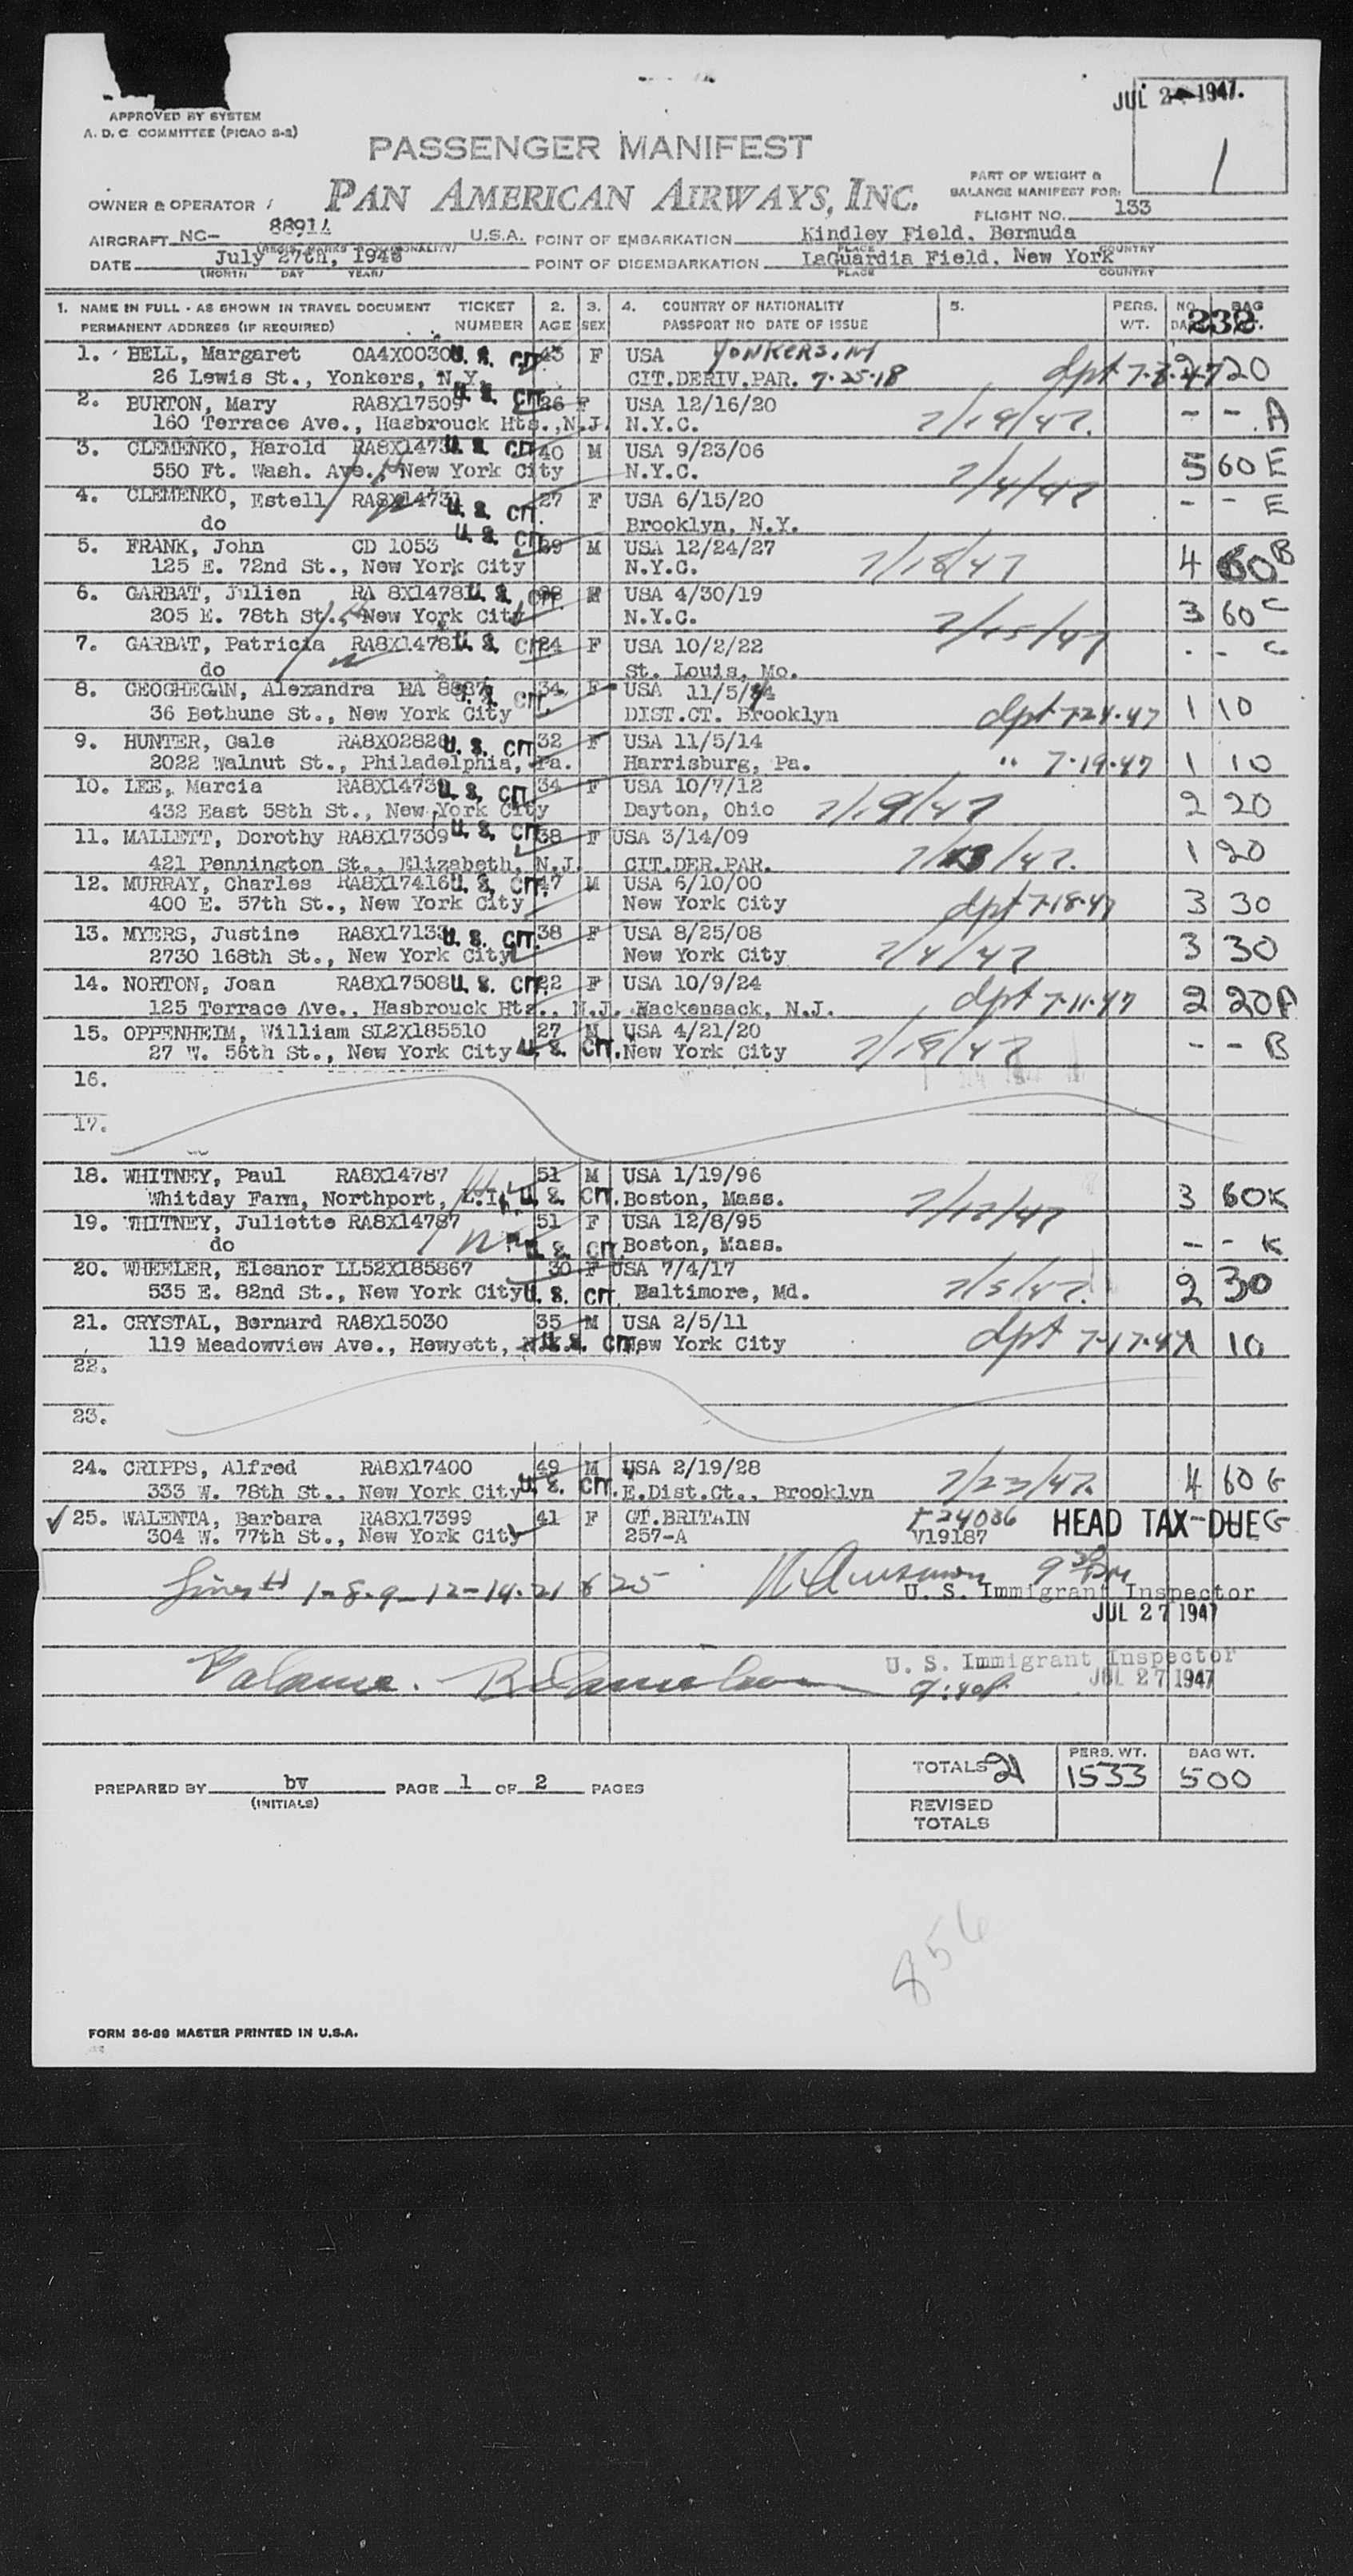 JUL 2 1947.
APPROVED BY SYSTEM
A. D. C. COMMITTEE (PICAO S-2)
PASSENGER MANIFEST
1
PART OF WEIGHT &
BALANCE MANIFEST FOR:
OWNER & OPERATOR PAN AMERICAN AIRWAYS, INC.
FLIGHT NO. 133
AIRCRAFT NC- 88914 U.S.A. POINT OF EMBARKATION Kindley Field, Bermuda
(REGIS. MARKS & NATIONALITY) PLACE COUNTRY
DATE July 27th, 1946 POINT OF DISEMBARKATION LaGuardia Field, New York
(MONTH DAY YEAR) PLACE COUNTRY
1. NAME IN FULL - AS SHOWN IN TRAVEL DOCUMENT TICKET 2. 3. 4. COUNTRY OF NATIONALITY 5. PERS. NO. BAG
PERMANENT ADDRESS (IF REQUIRED) NUMBER AGE SEX PASSPORT NO DATE OF ISSUE WT. 232
1. BELL, Margaret OA4X0030 U. S. CIT. 43 F USA YONKERS, NY
26 Lewis St., Yonkers, N.Y. CIT.DERIV.PAR. 7-25-18 dpt 20
2. BURTON, Mary RA8X17509 U. S. CIT. 26 F USA 12/16/20
160 Terrace Ave., Hasbrouck Hts., N.J. N.Y.C. 7/19/47. - - A
3. CLEMENKO, Harold RA8X1473 U. S. CIT. 40 M USA 9/23/06
550 Ft. Wash. Ave., New York City N.Y.C. 7/4/47 5 60 E
4. CLEMENKO, Estell RA8X14731 U. S. CIT. 27 F USA 6/15/20 - - E
do Brooklyn, N.Y.
5. FRANK, John CD 1053 U. S. CIT. 39 M USA 12/24/27
125 E. 72nd St., New York City N.Y.C. 7/18/47 4 60 B
6. GARBAT, Julien RA 8X1478 U. S. CIT. 28 M USA 4/30/19
205 E. 78th St., New York City N.Y.C. 7/15/47 3 60 C
7. GARBAT, Patricia RA8X1478 U. S. CIT. 24 F USA 10/2/22 - - C
do St. Louis, Mo.
8. GEOGHEGAN, Alexandra RA 8887 U. S. CIT. 34 F USA 11/5/
36 Bethune St., New York City DIST.CT. Brooklyn dpt 7-24-47 1 10
9. HUNTER, Gale RA8X02826 U. S. CIT. 32 F USA 11/5/14
2022 Walnut St., Philadelphia, Pa. Harrisburg, Pa. " 7-19-47 1 10
10. LEE, Marcia RA8X1473 U. S. CIT. 34 F USA 10/7/12
432 East 58th St., New York City Dayton, Ohio 7/19/47 2 20
11. MALLETT, Dorothy RA8X17309 U. S. CIT. 38 F USA 3/14/09
421 Pennington St., Elizabeth, N.J. CIT.DER.PAR. 1 20
12. MURRAY, Charles RA8X17416 U. S. CIT. 47 M USA 6/10/00
400 E. 57th St., New York City New York City dpt 7-18-47 3 30
13. MYERS, Justine RA8X1713 U. S. CIT. 38 F USA 8/25/08
2730 168th St., New York City New York City 7/4/47 3 30
14. NORTON, Joan RA8X17508 U. S. CIT. 22 F USA 10/9/24
125 Terrace Ave., Hasbrouck Hts., N.J. Hackensack, N.J. dpt 7-11-47 2 20 A
15. OPPENHEIM, William SL2X185510 27 M USA 4/21/20
27 W. 56th St., New York City U. S. CIT. New York City 7/18/47 - - B
16.
17.
18. WHITNEY, Paul RA8X14787 51 M USA 1/19/96
Whitday Farm, Northport, L.I. U. S. CIT. Boston, Mass. 7/12/47 3 60 K
19. WHITNEY, Juliette RA8X14787 51 F USA 12/8/95
do U. S. CIT. Boston, Mass. - - K
20. WHEELER, Eleanor LL52X185867 30 F USA 7/4/17
535 E. 82nd St., New York City U. S. CIT. Baltimore, Md. 7/5/47. 2 30
21. CRYSTAL, Bernard RA8X15030 35 M USA 2/5/11
119 Meadowview Ave., Hewyett, U. S. CIT. New York City dpt 7-17-47 1 10
22.
23.
24. CRIPPS, Alfred RA8X17400 49 M USA 2/19/28
333 W. 78th St., New York City U. S. CIT. E.Dist.Ct., Brooklyn 7/23/47. 4 60 G
25. WALENTA, Barbara RA8X17399 41 F GT.BRITAIN T-24036 HEAD TAX-DUE G
304 W. 77th St., New York City 257-A V19187
Lines 1-8-9-12-14-21 & 25 9 30 PM
U. S. Immigrant Inspector
JUL 27 1947
Balance.
U. S. Immigrant Inspector
JUL 27 1947
TOTALS 21 PERS. WT. 1533 BAG WT. 500
PREPARED BY bv PAGE 1 OF 2 PAGES
(INITIALS)
REVISED
TOTALS
856
FORM 36-89 MASTER PRINTED IN U.S.A.